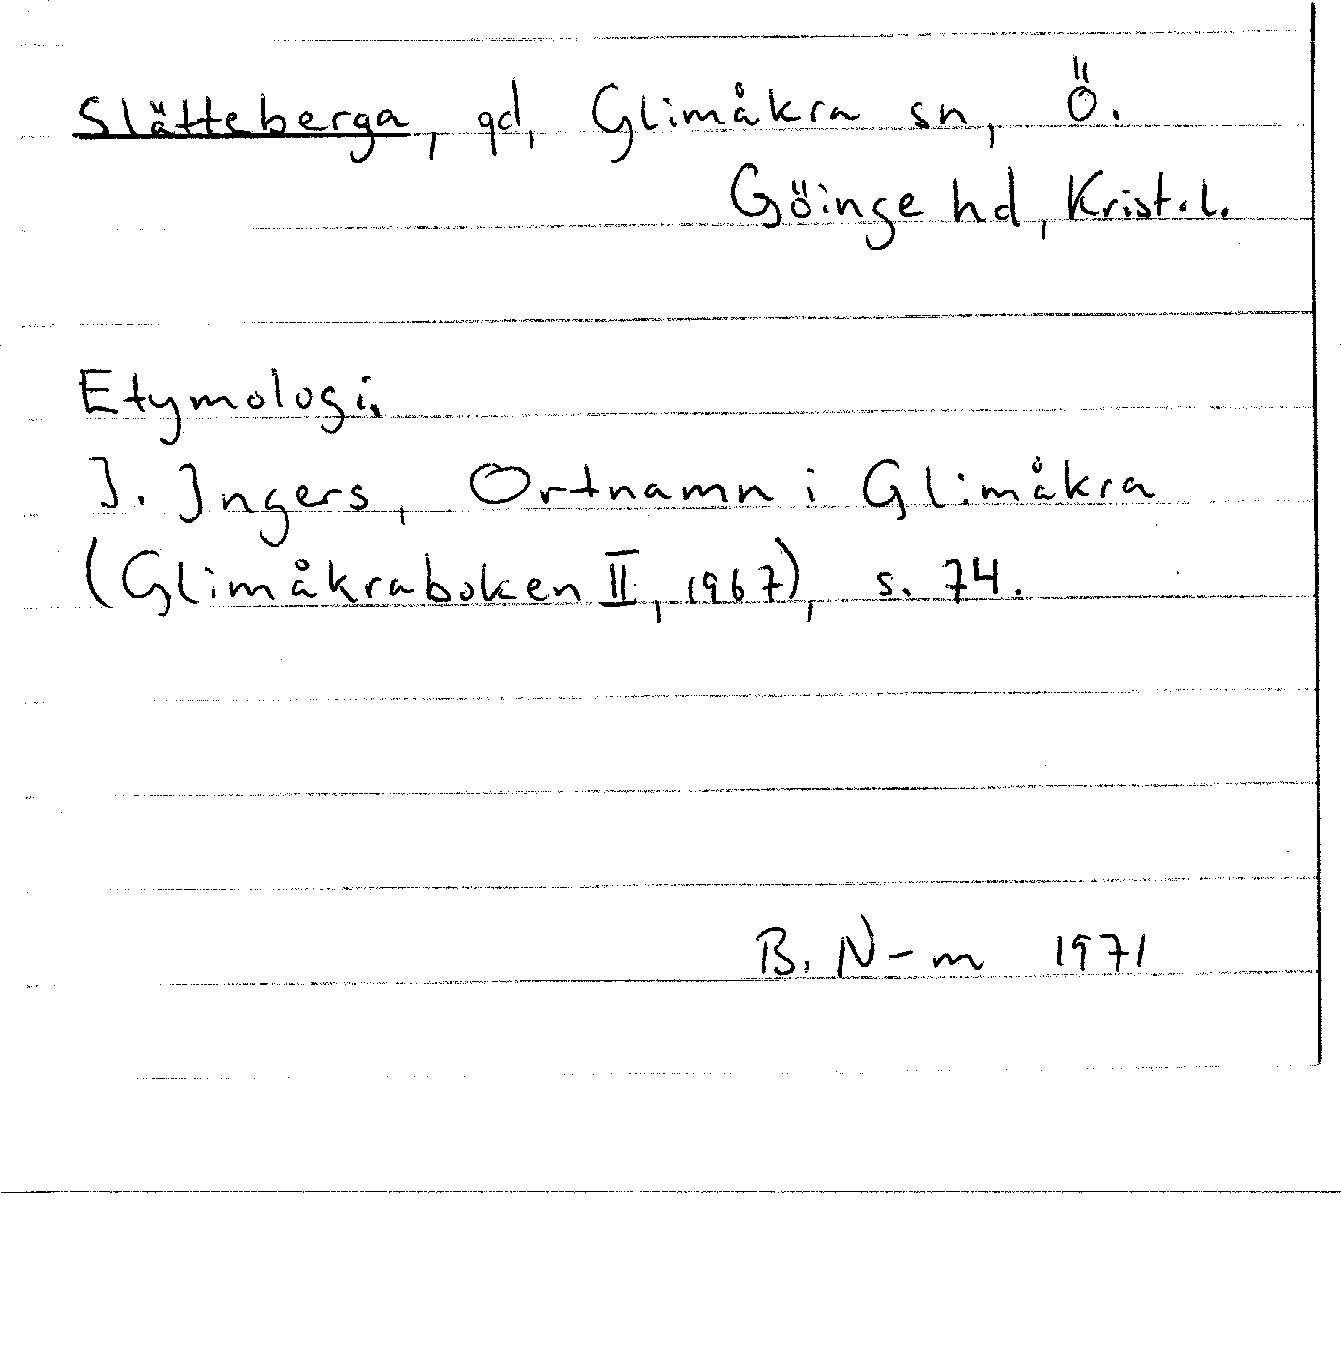 Slätteberga, gd, Glimåkra sn, Ö.
Göinge hd, Krist.l.
Etymologi.
I. Ingers, Ortnamn i Glimåkra
(Glimåkraboken II, 1967), s. 74.
B. N-m 1971